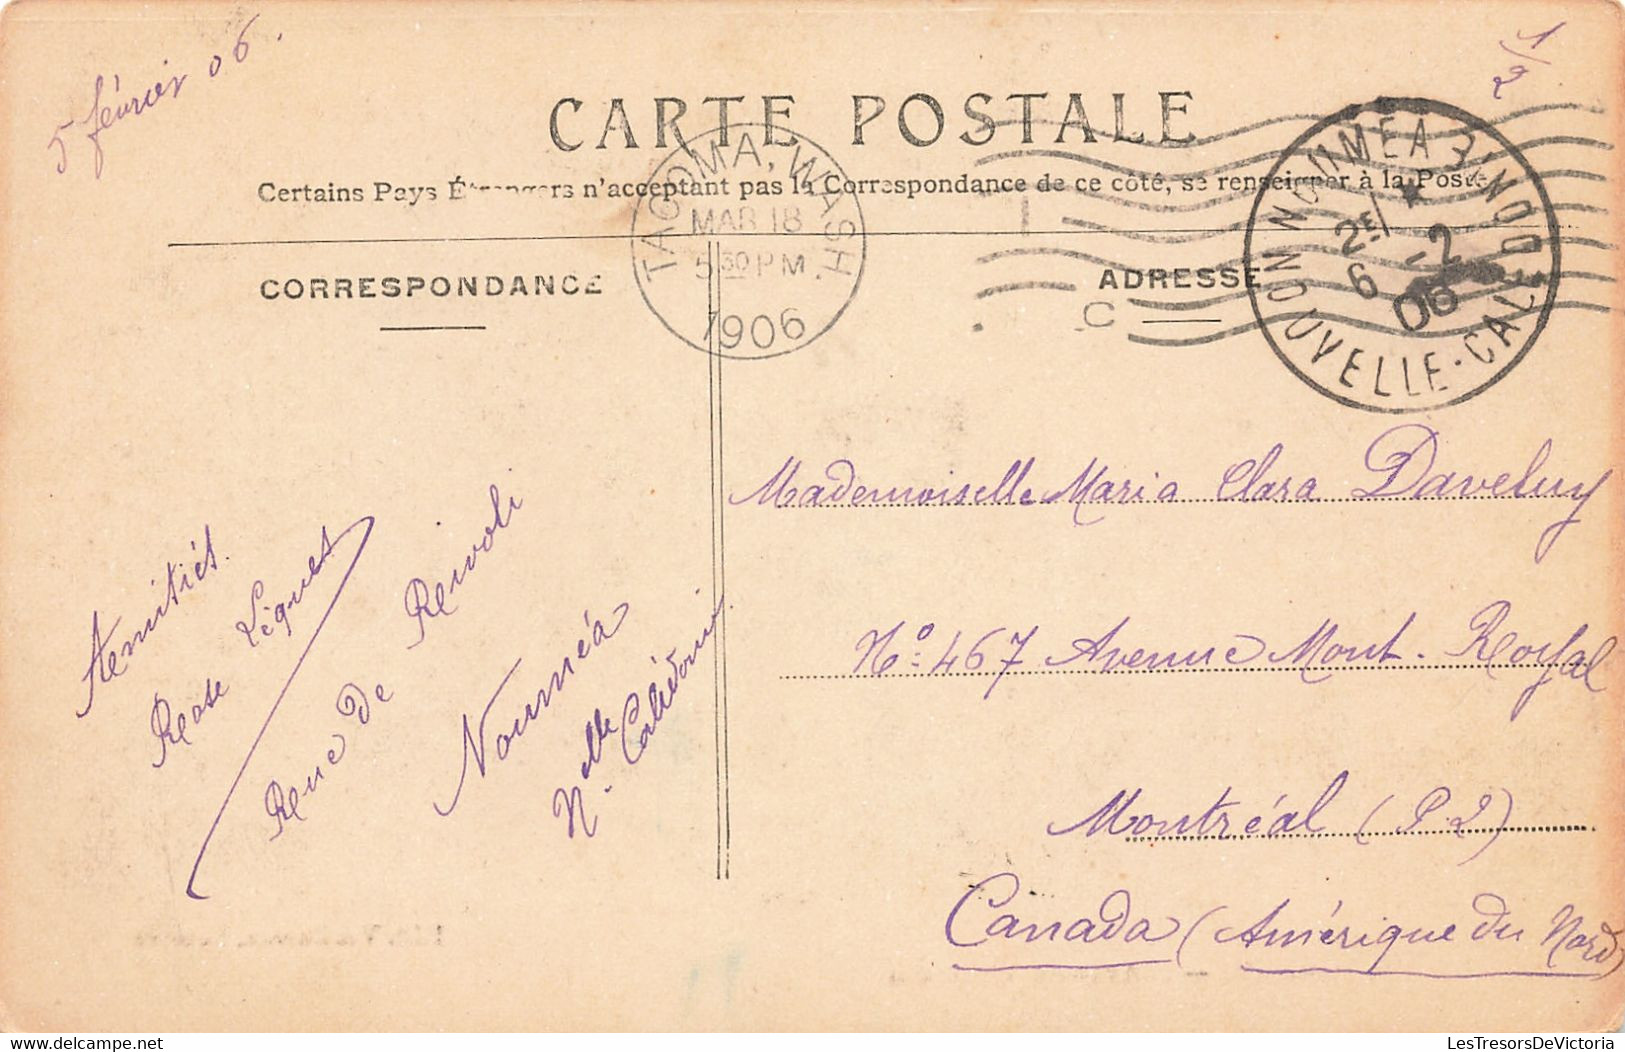 5 février 06.
1/2
CARTE POSTALE
Certains Pays Étrangers n'acceptant pas la Correspondance de ce côté, se renseigner à la Poste
TACOMA, WASH.
MAR 18
5 30 PM
1906
NOUMEA
2E
6 -2
06
NOUVELLE-CALEDONIE
CORRESPONDANCE
ADRESSE
C
Mademoiselle Maria Clara Daveluy
No: 467 Avenue Mont-Royal
Montréal (P.2)
Canada (Amérique du Nord)
Amitiés.
Rose Liquet
Rue de Rivoli
Nouméa
Nelle Calédonie
LesTresorsDeVictoria
https://www.delcampe.net
LesTresorsDeVictoria